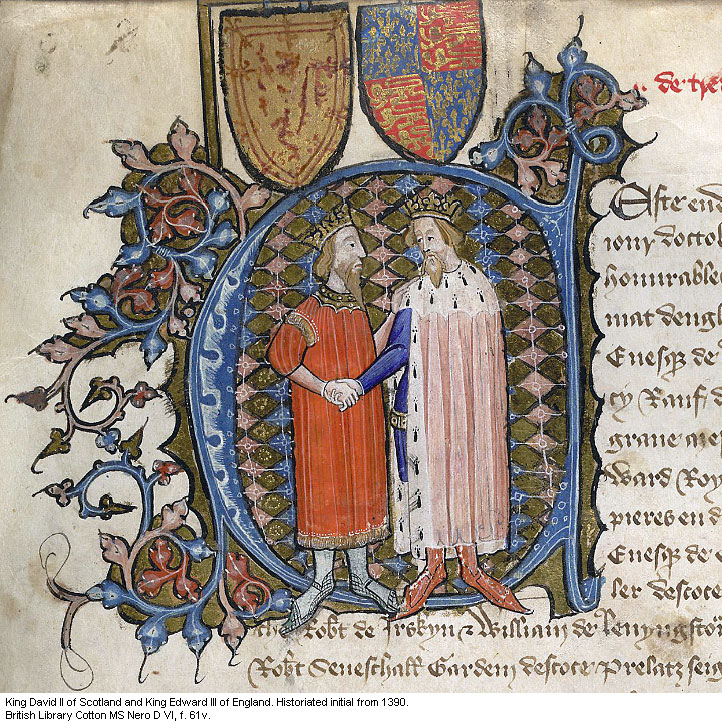 de tre
Aste end
iour doctob
honurable
mat dengl
Evesq de
ty Rauf d
grave
Ward Roy
pieres en d
Evesq de
ler descoce
Robt de Irskyn & William de Levyngston
Robt Seneschall Gardein descoce Prelatz seig
King David II of Scotland and King Edward III of England. Historiated initial from 1390.
British Library Cotton MS Nero D VI, f. 61v.